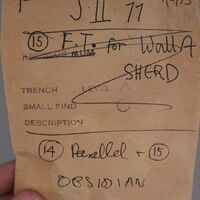 S II 77
(15) E.T. for Wall A
SHERD
TRENCH LEVEL
SMALL FIND
DESCRIPTION
(14) Parallel + (15)
OBSIDIAN